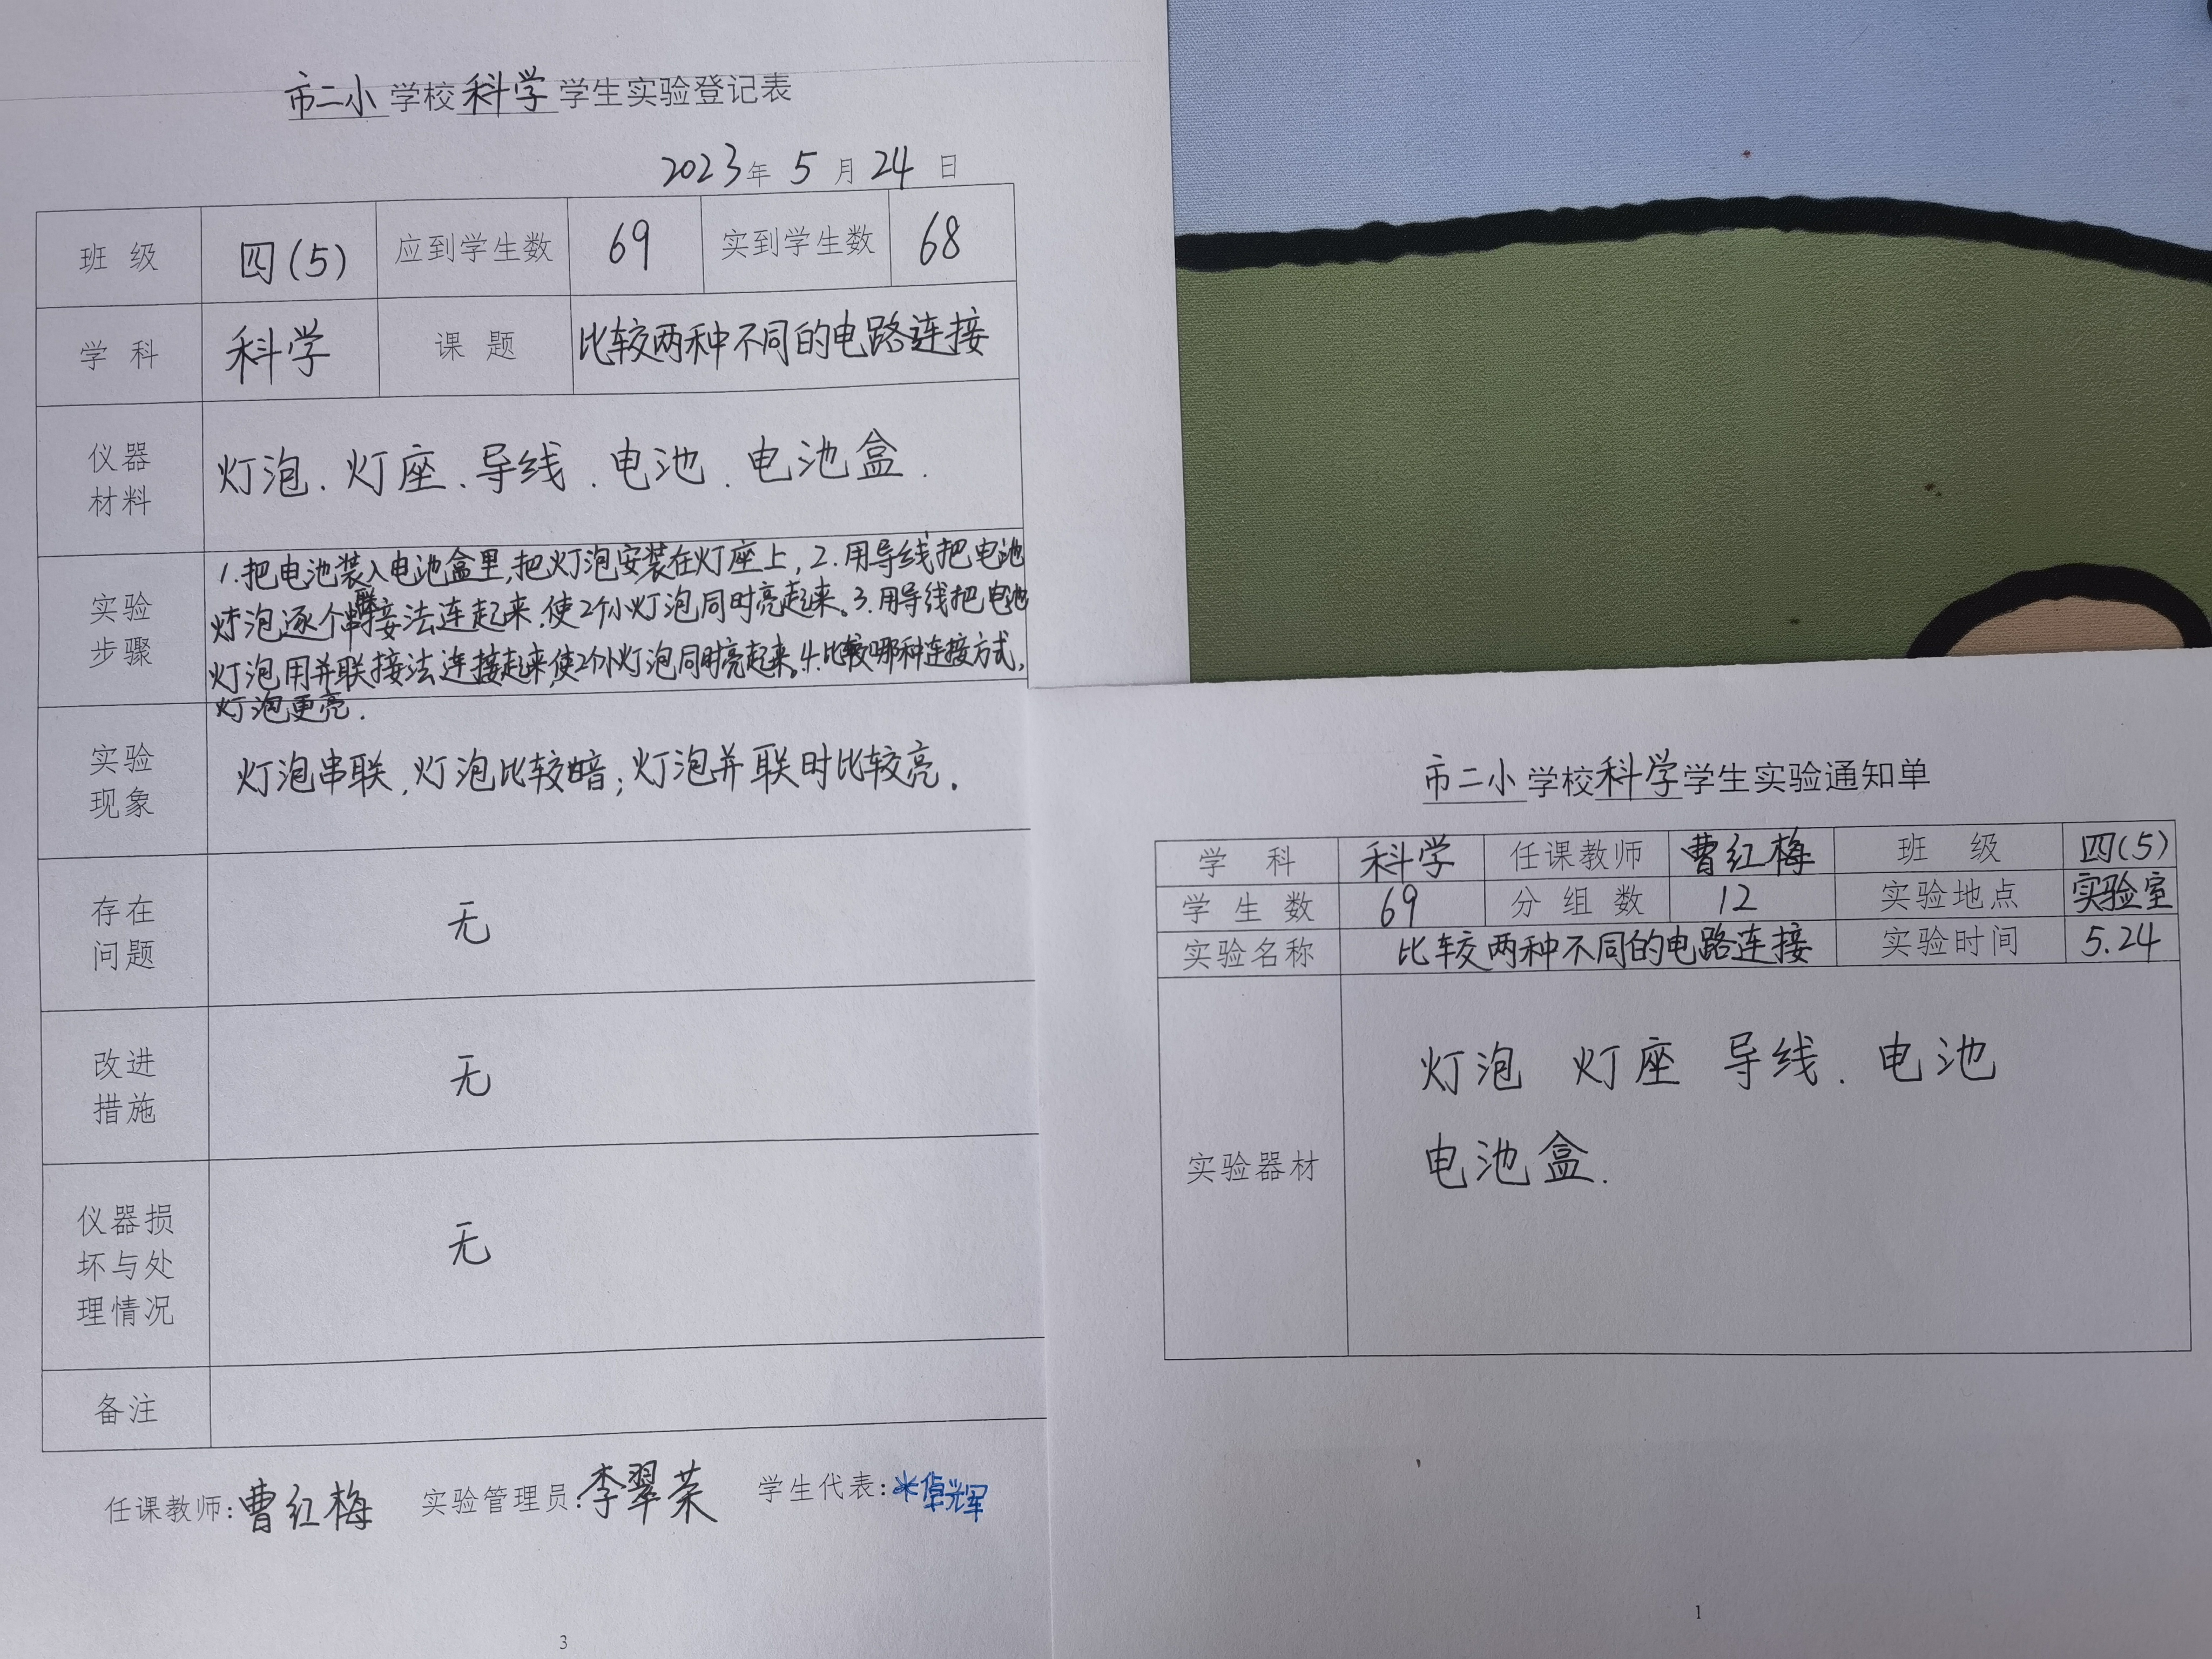 市二小学校科学学生实验登记表
2023年5月24日
班 级 四(5) 应到学生数 69 实到学生数 68
学 科 科学 课 题 比较两种不同的电路连接
仪器
材料
灯泡、灯座、导线、电池、电池盒.
实验
步骤
1.把电池装入电池盒里,把灯泡安装在灯座上,2.用导线把电池
灯泡逐个串联接法连起来,使2个小灯泡同时亮起来。3.用导线把电池
灯泡用并联接法连接起来,使2个小灯泡同时亮起来。4.比较哪种连接方式,
灯泡更亮.
实验
现象
灯泡串联,灯泡比较暗;灯泡并联时比较亮.
存在
问题
无
改进
措施
无
仪器损
坏与处
理情况
无
备注
任课教师:曹红梅 实验管理员:李翠荣 学生代表:
3
市二小学校科学学生实验通知单
学 科 科学 任课教师 曹红梅 班 级 四(5)
学 生 数 69 分 组 数 12 实验地点 实验室
实验名称 比较两种不同的电路连接 实验时间 5.24
实验器材
灯泡 灯座 导线、电池
电池盒.
1